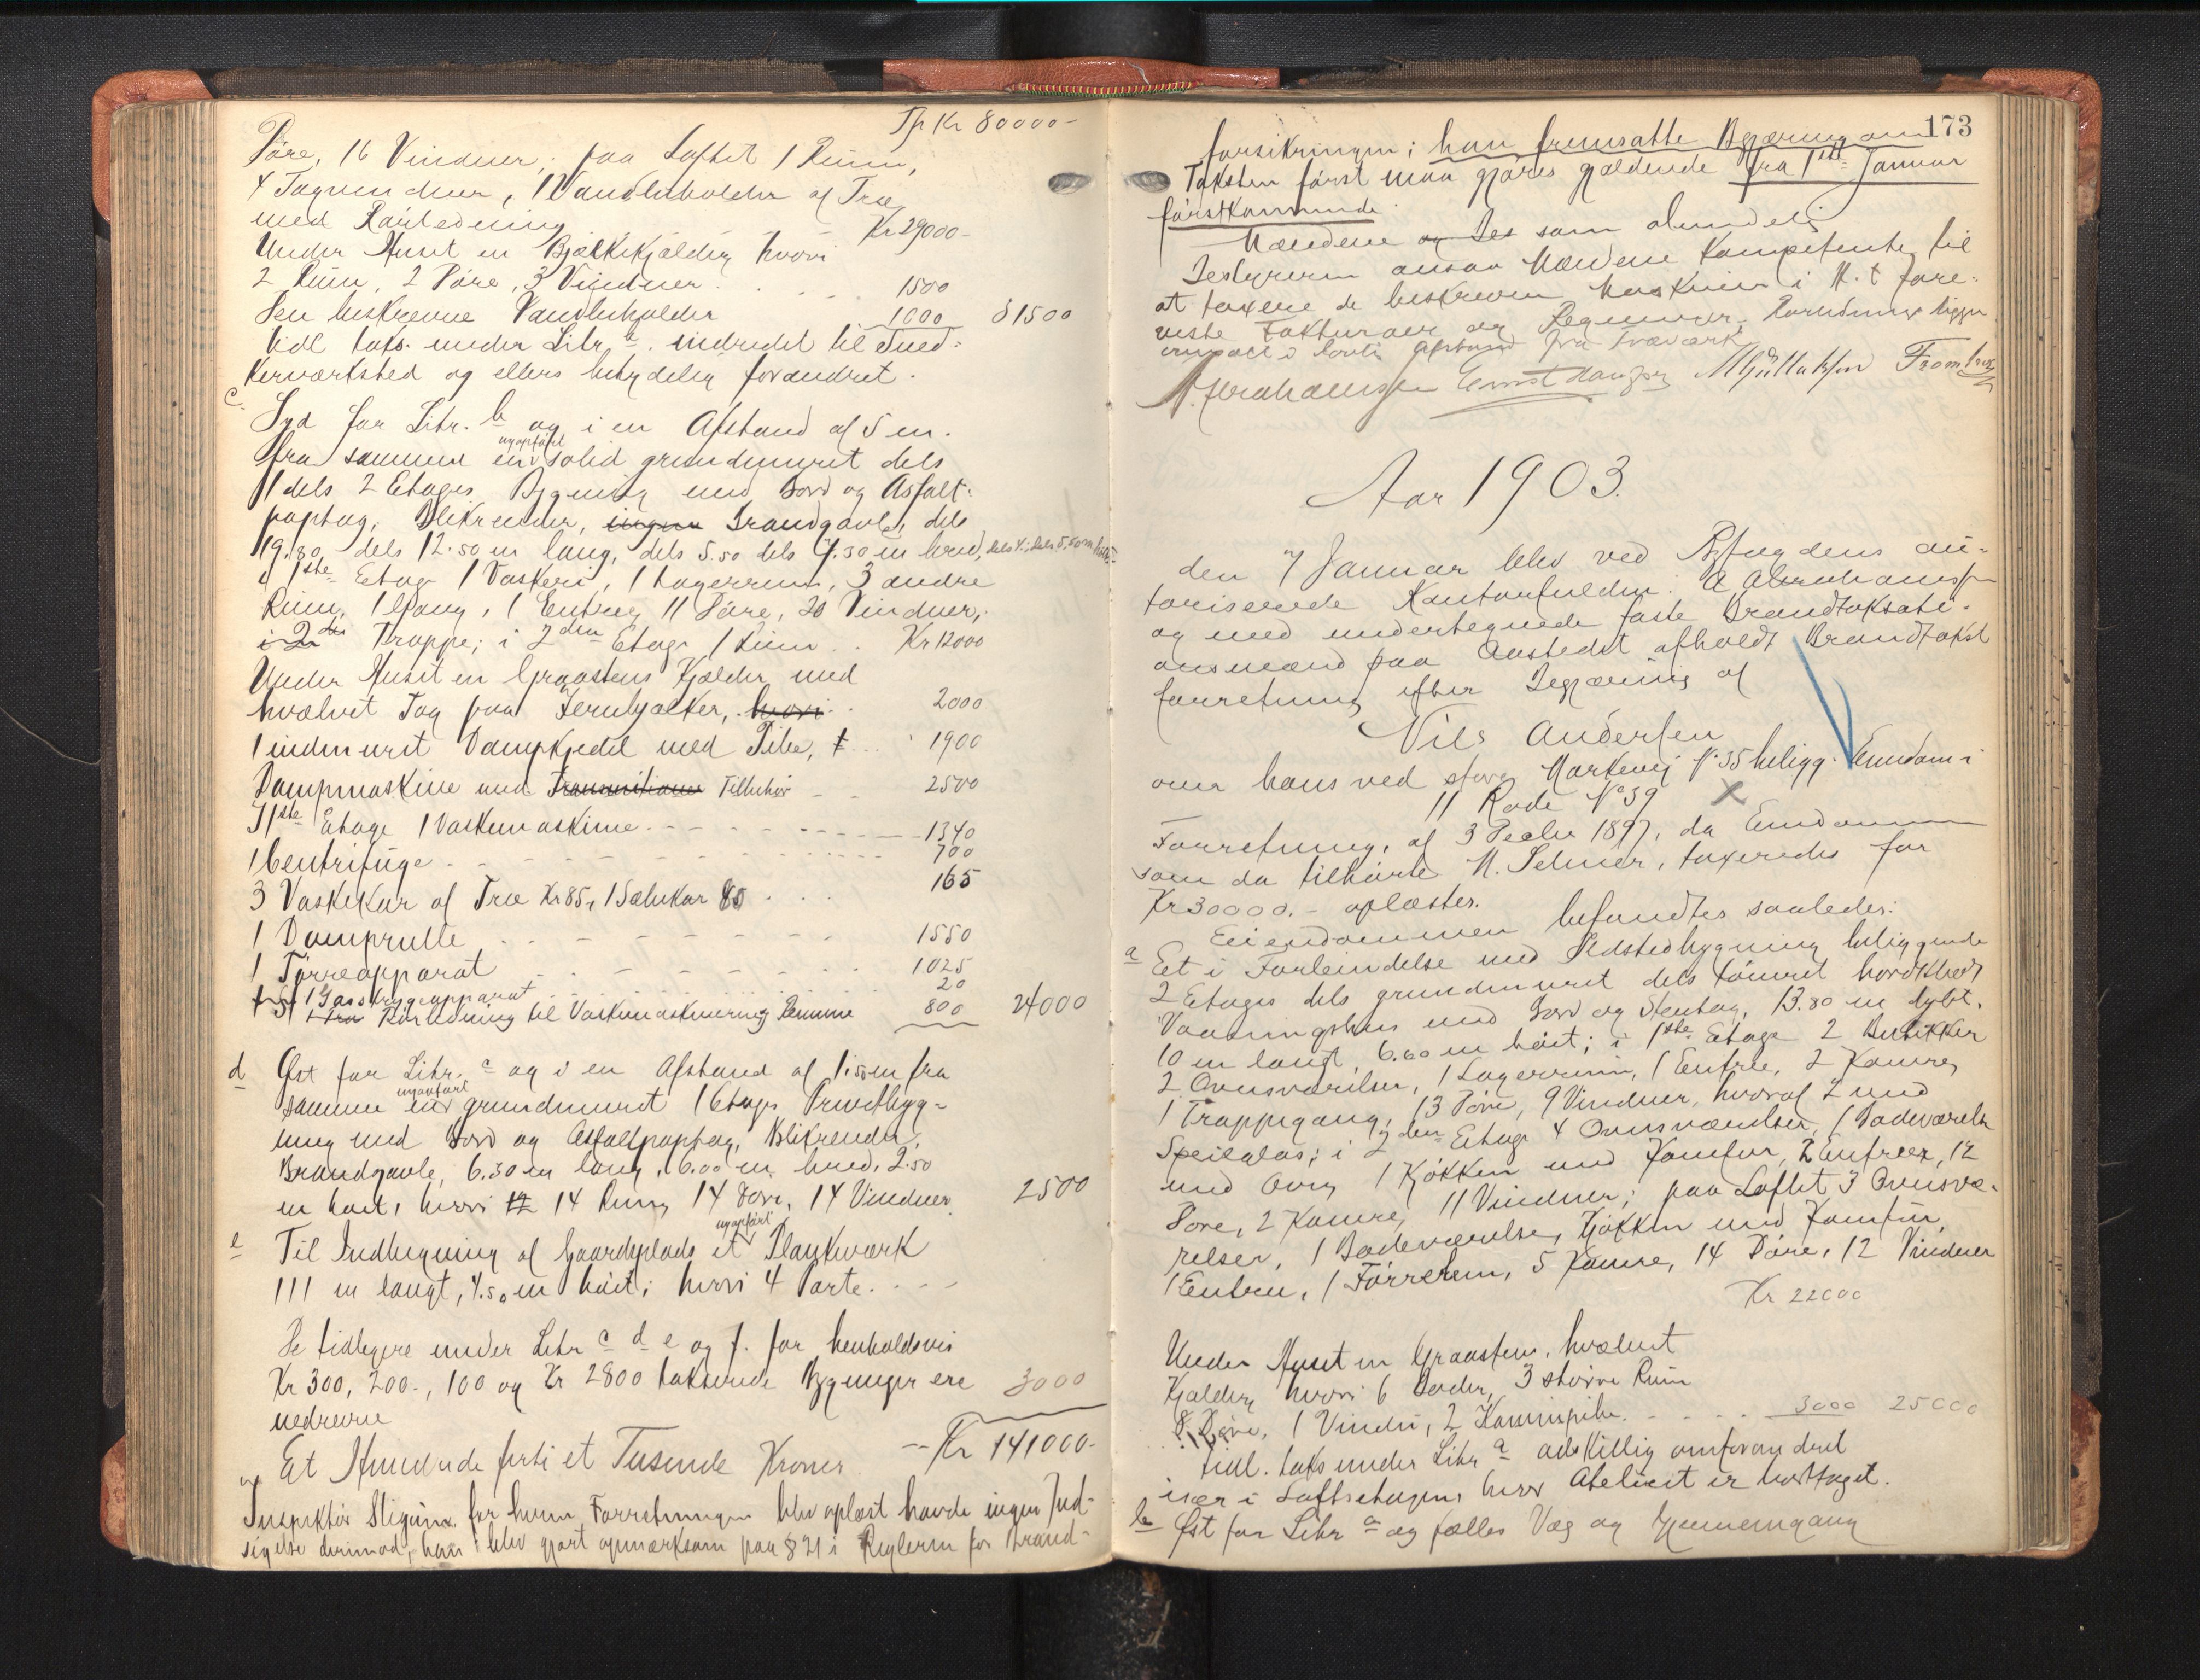 Tp Kr 80000-
Döre, 16 Vinduer; paa Loftet 1 Rum,
4 Tagvinduer, 1 Vandbeholder af Træ
med Rörledning Kr 29000-
Under Huset en Bjælkekjelder, hvori
2 Rum, 2 Döre, 3 Vinduer 1500
Den beskrevne Vandbeholder 1000 81500
tidl. taks. under Litr. a. indredet til Sned-
kerværksted og ellers betydelig forandret.
c. Syd for Litr. b og i en Afstand af 5 m.
fra samme en nyopført solid grundmuret dels
1 dels 2 Etages Bygning med Bord og Asfalt-
paptag, Blikrender, ingen Brandgavle, dels
19.80 dels 12.50 m lang, dels 5.50 dels 9.30 m bred,
i 1ste Etage 1 Vaskeri, 1 Lagerrum, 3 andre
Rum, 1 Gang, 1 Entree, 11 Döre, 20 Vinduer,
i 2den Trappe; i 2den Etage 1 Rum . . Kr 12000
Under Huset en Graastens Kjelder med
hvælvet Tag paa Jernbjælker, hvori . . 2000
1 indmuret Dampkjedel med Pibe, 1900
Dampmaskine med Transmitioner Tilbehör 2500
I 1ste Etage 1 Vaskemaskine 1340
1 Centrifuge 700
3 Vaskekar af Træ Kr 85, 1 Sæbekar 80 165
1 Damprulle 1550
1 Tørreapparat 1025
1 Gasstrygeapparat 20
Rörledning til Vaskemaskineriz Rumme 800 24000
d Øst for Litr. c og i en Afstand af 1.50 m fra
samme en nyopført grundmuret 1 Etages Privetbyg-
ning med Bord og Asfaltpaptag, Blikrender,
Brandgavle, 6.30 m lang, 6.00 m bred, 2.50
m höit, hvori 14 Rum, 14 Döre, 14 Vinduer. 2500
e Til Indhegning af Gaardsplads et nyopført Plankeværk
111 m langt, 4.50 m höit; hvori 4 Porte.
De tidligere under Litr c d e og f. for henholdsvis
Kr 300, 200-, 100 og Kr 2800 takserede Bygninger ere 3000
nedrevne
Et Hundrede forti et Tusende Kroner -- Kr 141000-
Inspektör for hvem Forretningen blev oplæst havde ingen Ind-
sigelse derimod, han blev gjort opmærksom paa § 21 i Reglerne for Brand-
173
forsikringen; han fremsatte Begjæring om
Taksten först maa gjöres gjældende fra 1ste Januar
förstkommende.
Mændene som almindelig
Bestyreren ansaa Mændene kompetente til
at taxere de beskrevne Maskiner i H. t. fore-
viste Fakturaer og Regninger.
A. Abrahamsen
Aar 1903.
den 7 Januar blev ved Byfogdens au-
toriserede Kontorfuldm. A. Abrahamsen
og med undertegnede faste Brandtaksati-
onsmænd paa Aastedet afholdt Brandtakst
forretning efter Begjæring af
Nils Andersen
over hans ved store Markevei No 35 beligg. Eiendom i
11 Rode No 39 X
Forretning, af 3 Decbr 1897, da Eiendommen
som da tilhörte N. Selmer, taxeredes for
Kr 30000.- oplæstes.
Eiendommen befandtes saaledes:
a Et i Forbindelse med Ildstedbygning beliggende
2 Etages dels grundmuret dels tömret bordklædt
Vaaningshus med Bord og Stentag, 13.80 m dybt,
10 m langt, 6.60 m höit; i 1ste Etage 2 Butikker
2 Ovnsværelser, 1 Lagerrum, 1 Entree, 2 Kamre,
1 Trappegang, 13 Döre, 9 Vinduer, hvoraf 2 med
Speilglas; i 2den Etage 4 Ovnsværelser, 1 Badeværelse
med Ovn, 1 Kjökken med Komfur, 2 Entreer, 12
Döre, 2 Kamre, 11 Vinduer; paa Loftet 3 Ovnsvæ-
relser, 1 Badeværelse, Kjökken med Komfur,
1 Entree, 1 Törrerum, 5 Kamre, 14 Döre, 12 Vinduer
Kr 22000
Under Huset en Graastens, hvælvet
Kjelder, hvori 6 Boder, 3 större Rum
8 Döre, 1 Vindu, 2 Kaminpibe. 3000 25000
tidl. taks under Litr a adskillig omforandret
især i Loftsetagen, hvor Atelieret er borttaget.
b Øst for Litr a og fælles Væg og Gjennemgang